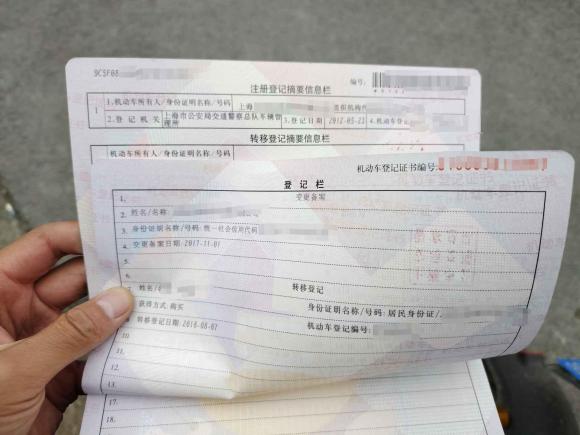 9CSF08
编号:
注册登记摘要信息栏
1 1.机动车所有人/身份证明名称/号码 上海
2.登 记 机 关 上海市公安局交通警察总队车辆管理所 3.登记日期 2012-05-23 4.机动车
转移登记摘要信息栏
机动车所有人/身份证明名称/号码
机动车登记证书编号:
登 记 栏
1. 变更备案
2. 姓名/名称:
3. 身份证明名称/号码: 统一社会信用代码
4. 变更备案日期: 2017-11-01
5.
6. 转移登记
姓名/
身份证明名称/号码: 居民身份证/
获得方式: 购买
机动车登记编号:
转移登记日期: 2018-08-07
10.
11.
12.
13.
17.
18.